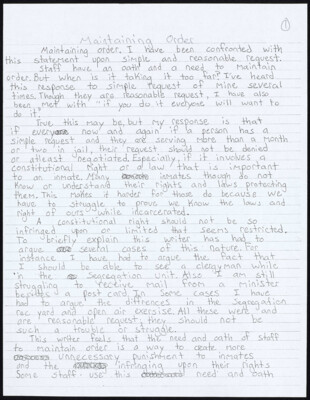 1
Maintaining Order
Maintaining order. I have been confronted with
this statement upon simple and reasonable request.
Staff have an oath and a need to maintain
order. But when is it taking it too far? I've heard
this response to simple request of mine several
times. Though they are reasonable request, I have also
been met with "if you do it everyone will want to
do it."
True this may be, but my response is that
if every now and again if a person has a
simple request and they are serving more than a month
or two in jail, their request should not be denied
or atleast "negotiated. Especially, if it involves a
constitutional right or a law that is important
to an inmate. Many inmates though do not
know or understand their rights and laws protecting
them. This makes it harder for those do because we
have to struggle to prove we know the laws and
right of ours" while incarcerated.
A constitutional right should not be so
infringed upon or limited that seems restricted.
To briefly explain this writer has had to
argue several cases of this nature. For
instance I have had to argue the fact that
I should be able to see a clergyman while
in the Segregation Unit. Also I am still
struggling to receive mail from a minister
besides a post card. In some cases I have
had to argue the differences in the Segregation
rec yard and open air exercise. All these were "and
are "reasonable request, they should not be
such a trouble or struggle.
This writer feels that this need and oath of staff
to maintain order is a way to create more
unnecessary punishment to inmates
and the infringing upon their rights
Some staff use this need and oath